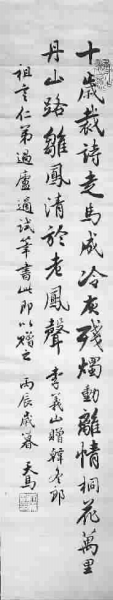 十歲裁詩走馬成冷灰殘燭動離情桐花萬里
丹山路雛鳳清於老鳳聲 李義山贈韓冬郎
祖言仁弟過盧適試筆書此即以贈之 丙辰歲暮 天馬